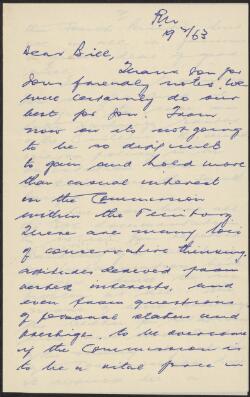 Dear Bill,
Thank you for
your friendly notes. We
will certainly do our
best for you. From
now on it's not going
to be so difficult
to gain and hold more
than casual interest
in the Commission
within the Territory
There are many bits
of conservative thinking,
attitudes derived from
vested interests, and
even from questions
of personal status and
prestige, to be overcome
if the Commission is
to be a vital force in